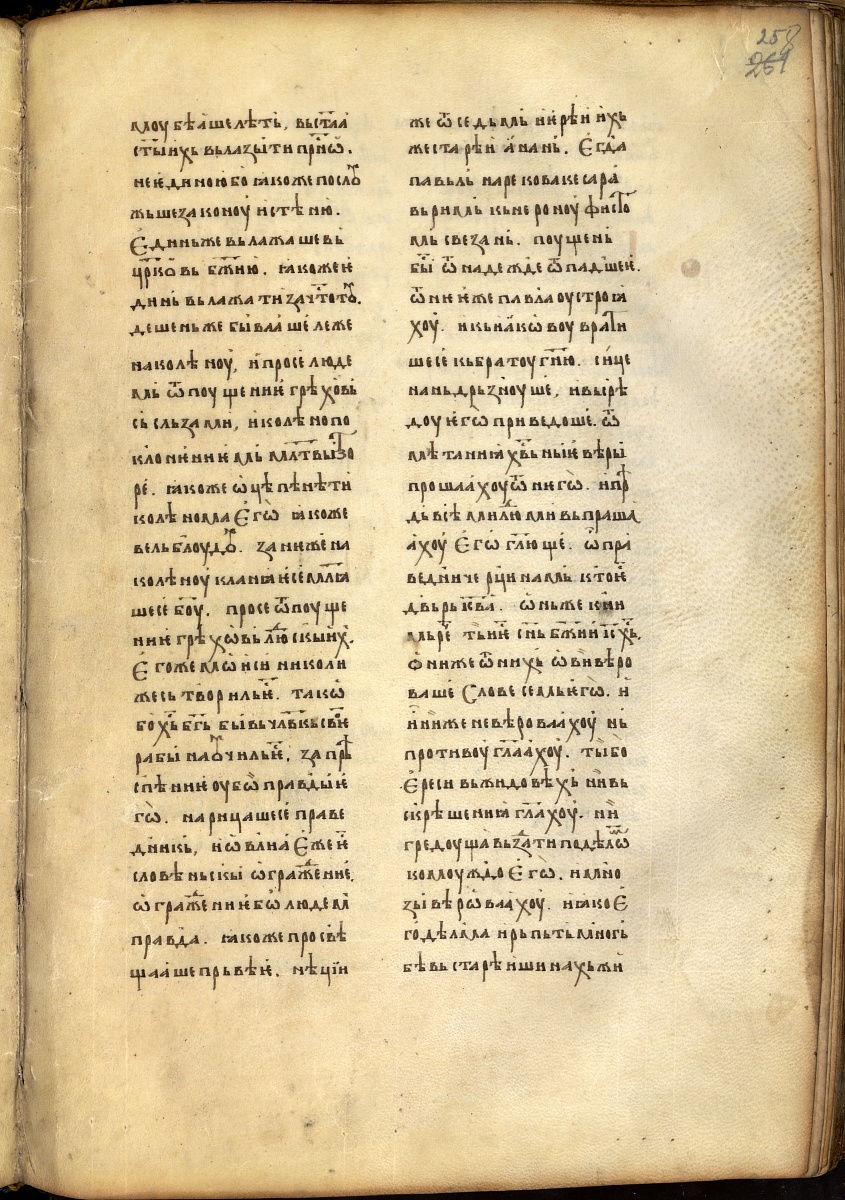 258
261
моу бѣа̀ше лѣть, въст҃лаа̀
ст҃ыи́хь вьлазы́ти пр҃ншѡ̀.
не ѥ҆ди́ною бо ꙗкоже послоу
жьше законоу и҆стѣнию.
Е҆ди́нь же вьлажаше вь
цр҃ковь бж҃ию. ꙗкоже ѥ҆
ди́нь вьлажати за чт҃отоу.
деше́нь же бываа̀ше леже
на колѣноу, и҆ просе́ людем
мь ѿпоущениѥ грѣховь
сь сльзами, и҆ колѣнопо
клонѥниѥмь
ре́. ꙗкоже ѡ҆цѣпѣнѣти
колѣнома Е҆гѡ̀ ꙗкоже
вельблоудоу. зание же на
колѣноу кланиа́ѥ се мл҃ꙗ
шесе бо҃у. просе ѿпоуще
ниѥ грѣхѡвь лю҃скыи́хь.
Е҆гоже мѡ̀иси николи
же сьтвориль ѥ҆. такѡ̀
бо х҃ь бг҃ь бы́вь чл҃вкь своѥ
рабы наоучиль ѥ҆, за прѣ
спѣниѥ оубѡ̀ правды ѥ҆
гѡ̀. нарица́шесе праве
дникь, и҆ ѡвлиа́ Е҆же ѥ҆
словѣньскы ѡ҆гражениѥ,
ѡ҆гражениѥ бѡ̀ людемь
правда. ꙗкоже про свѣ
щаа́ше прьвѣѥ. нѣции
же ѿ седьмь и҆ѥрѣи и҆хь
же старѣи а҆нань. Е҆гда
павьль нарекова кесара
вь римь кь нероноу фистѡ
мь свезань. поущень
бы ѿ надежде ѿпадшеѥ.
ѿ ниѥже павла оустроꙗ
хоу. и҆ кь иа́кѡвоу врати
шесе кь братоу гн҃ю. си́це
на нь дрьзноуше, и҆ вь срѣ
доу ѥ҆гѡ̀ приведоше. ѿ
мѣтаниꙗ хв҃ьныѥ вѣры
прошаа́хоу ѿ нѥгѡ. и҆ прѣ
дь всѣми лю҃ми вьпраша
а҆хоу Е҆гѡ гл҃юще. ѡ҆ пра
ведниче рци намь кто ѥ҆
двьрь і҆с҃ва. ѡ҆нь же к ни
мь ре҃ ть ѥ҆ сн҃ь бж҃ии і҆с҃ х҃ь.
ѡ҆ни же ѿ нихь ѡ҆ви вѣро
ваше Словесемь ѥ҆гѡ. и҆
и҆ни же не вѣроваа́хоу нь
противоу гл҃аа҆хоу. ты бо
Е҆реси вь жидовѣхь ни вь
скрѣшениꙗ гл҃ахоу. ни
гредоуща вьзати по дѣлѡⷨ
комоуждо Е҆гѡ. и҆ мно
зы вѣрѡваа́хоу. и҆ ꙗко Е҆
го дѣлма и҆ рьпьть многь
бѣ вь старѣишинахь жи